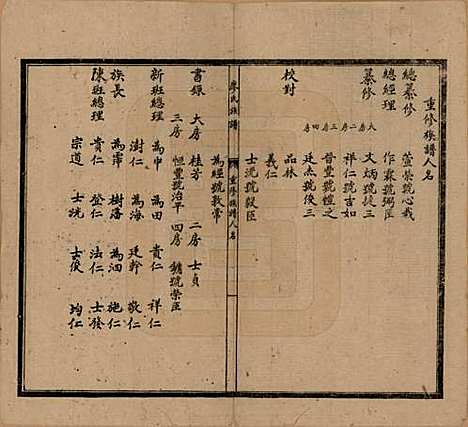 重修族譜人名
總纂修 萱榮號心哉
總經理 作霖號弼臣
纂修 大房 文炳號捷三
二房 祥仁號吉如
三房 晉豐號植之
四房 廷杰號俊三
校對 品林
義仁
士洗號毅臣
廖氏族譜 重修族譜人名
為經號敦常
書錄 大房 桂芳 二房 士貞
三房 恒豐號治平 四房 號榮臣
新班總理 為中 為田 貴仁 祥仁
澍仁 為海 廷幹 敬仁
族長 為萍 樹藩 為泗 施仁
陳班總理 貴仁 登仁 法仁 士發
宗道 士洗 士俊 均仁